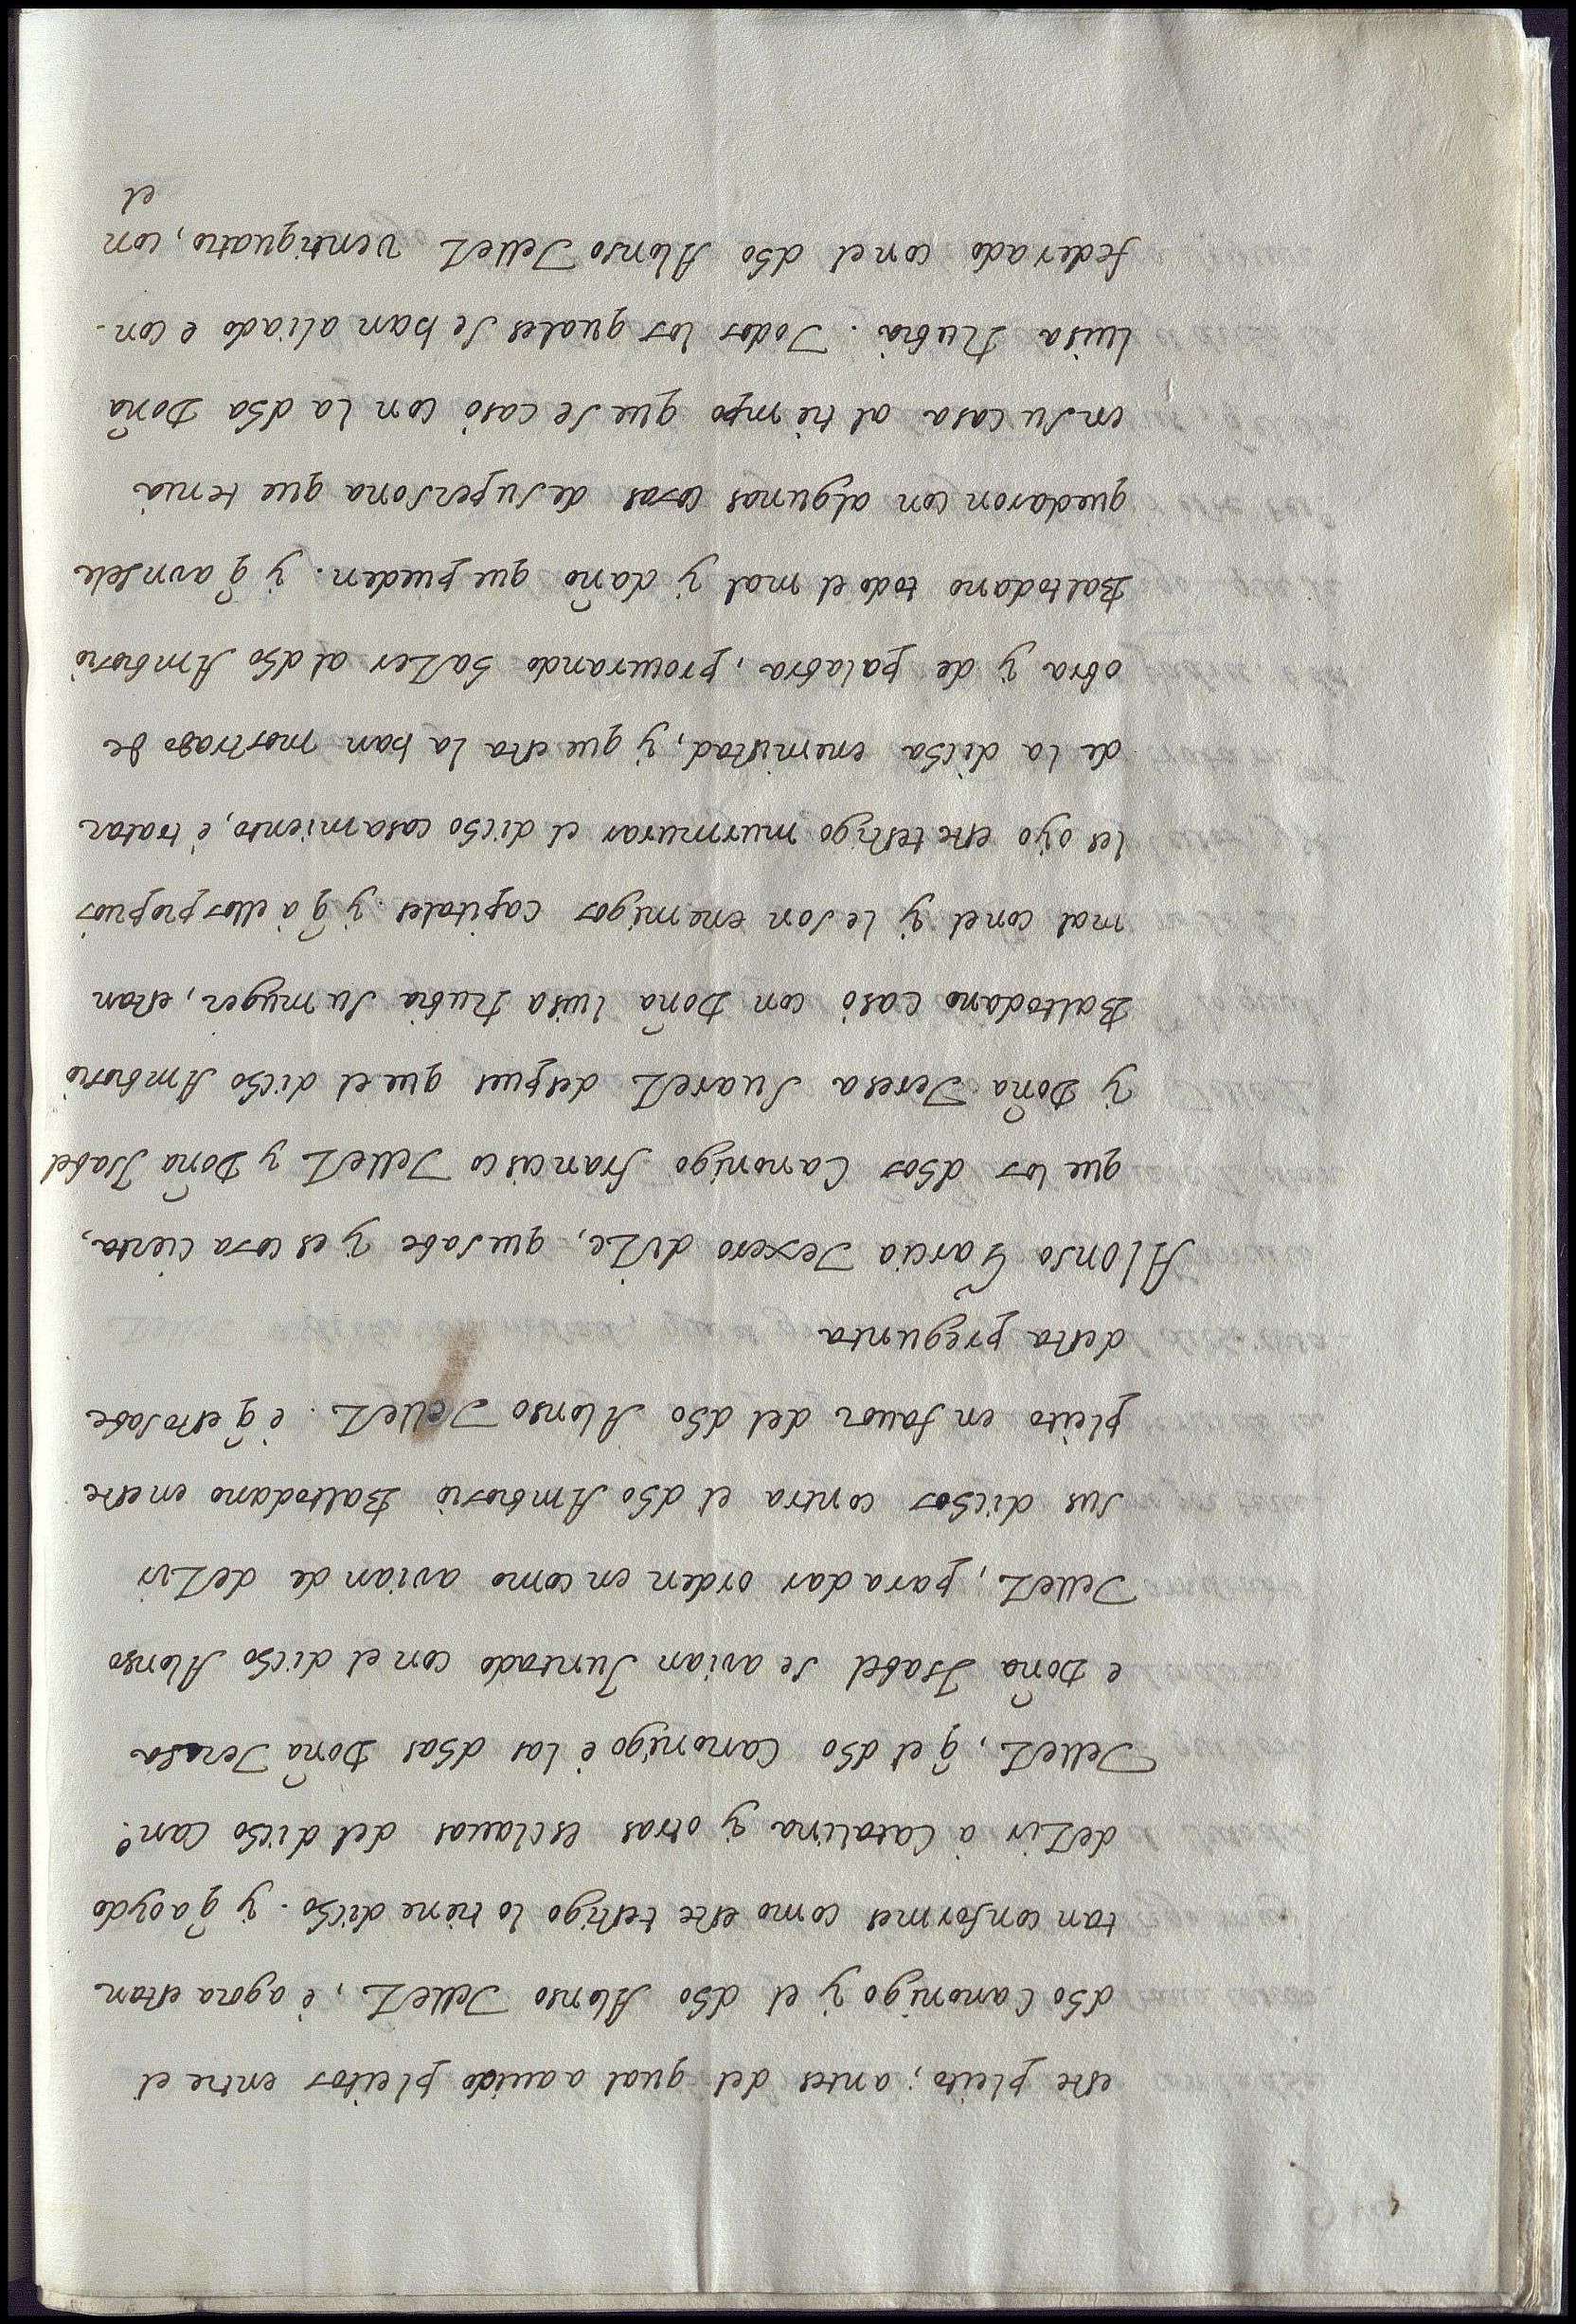 este pleito; antes del qual a auido pleitos entre el
dho Canonigo ÿ el dho Alonso TelleZ, è agora estan
tan conformes como este testigo lo tiene dicho. ÿ q̃ aoydo
deZir à Catalina ÿ otras esclauas del dicho Can.º
TelleZ, q̃ el dho Canonigo è las dhas Doña Teresa
e Doña Isabel se avian Juntado con el dicho Alonso
TelleZ, para dar orden en como avian de deZir
sus dichos contra el dho Ambrosio Baltodano en este
pleito en fauor del dho Alonso TelleZ. è q̃ esto sabe
desta pregunta
Alonso Garcia Texero diZe, que sabe ÿ es cosa cierta,
que los dhos Canonigo Francisco TelleZ y Doña Isabel
ÿ Doña Teresa SuareZ despues que el dicho Ambrosio
Baltodano casò con Doña luisa Rubia su muger, estan
mal con el ÿ le son enemigos capitales. ÿ q̃ à ellos propios
les oÿo este testigo murmurar el dicho casamiento, è tratar
de la dicha enemistad, ÿ que esta la han mostrado de
obra ÿ de palabra, procurando haZer al dho Ambrosio
Baltodano todo el mal ÿ daño que pueden. ÿ q̃ aun sele
quedaron con algunas cosas de su persona que tenia
en su casa al tiempo que se casò con la dha Doña
luisa Rubia. Todos los quales se han aliado e con-
federado con el dho Alonso TelleZ ventiquatro, con
el